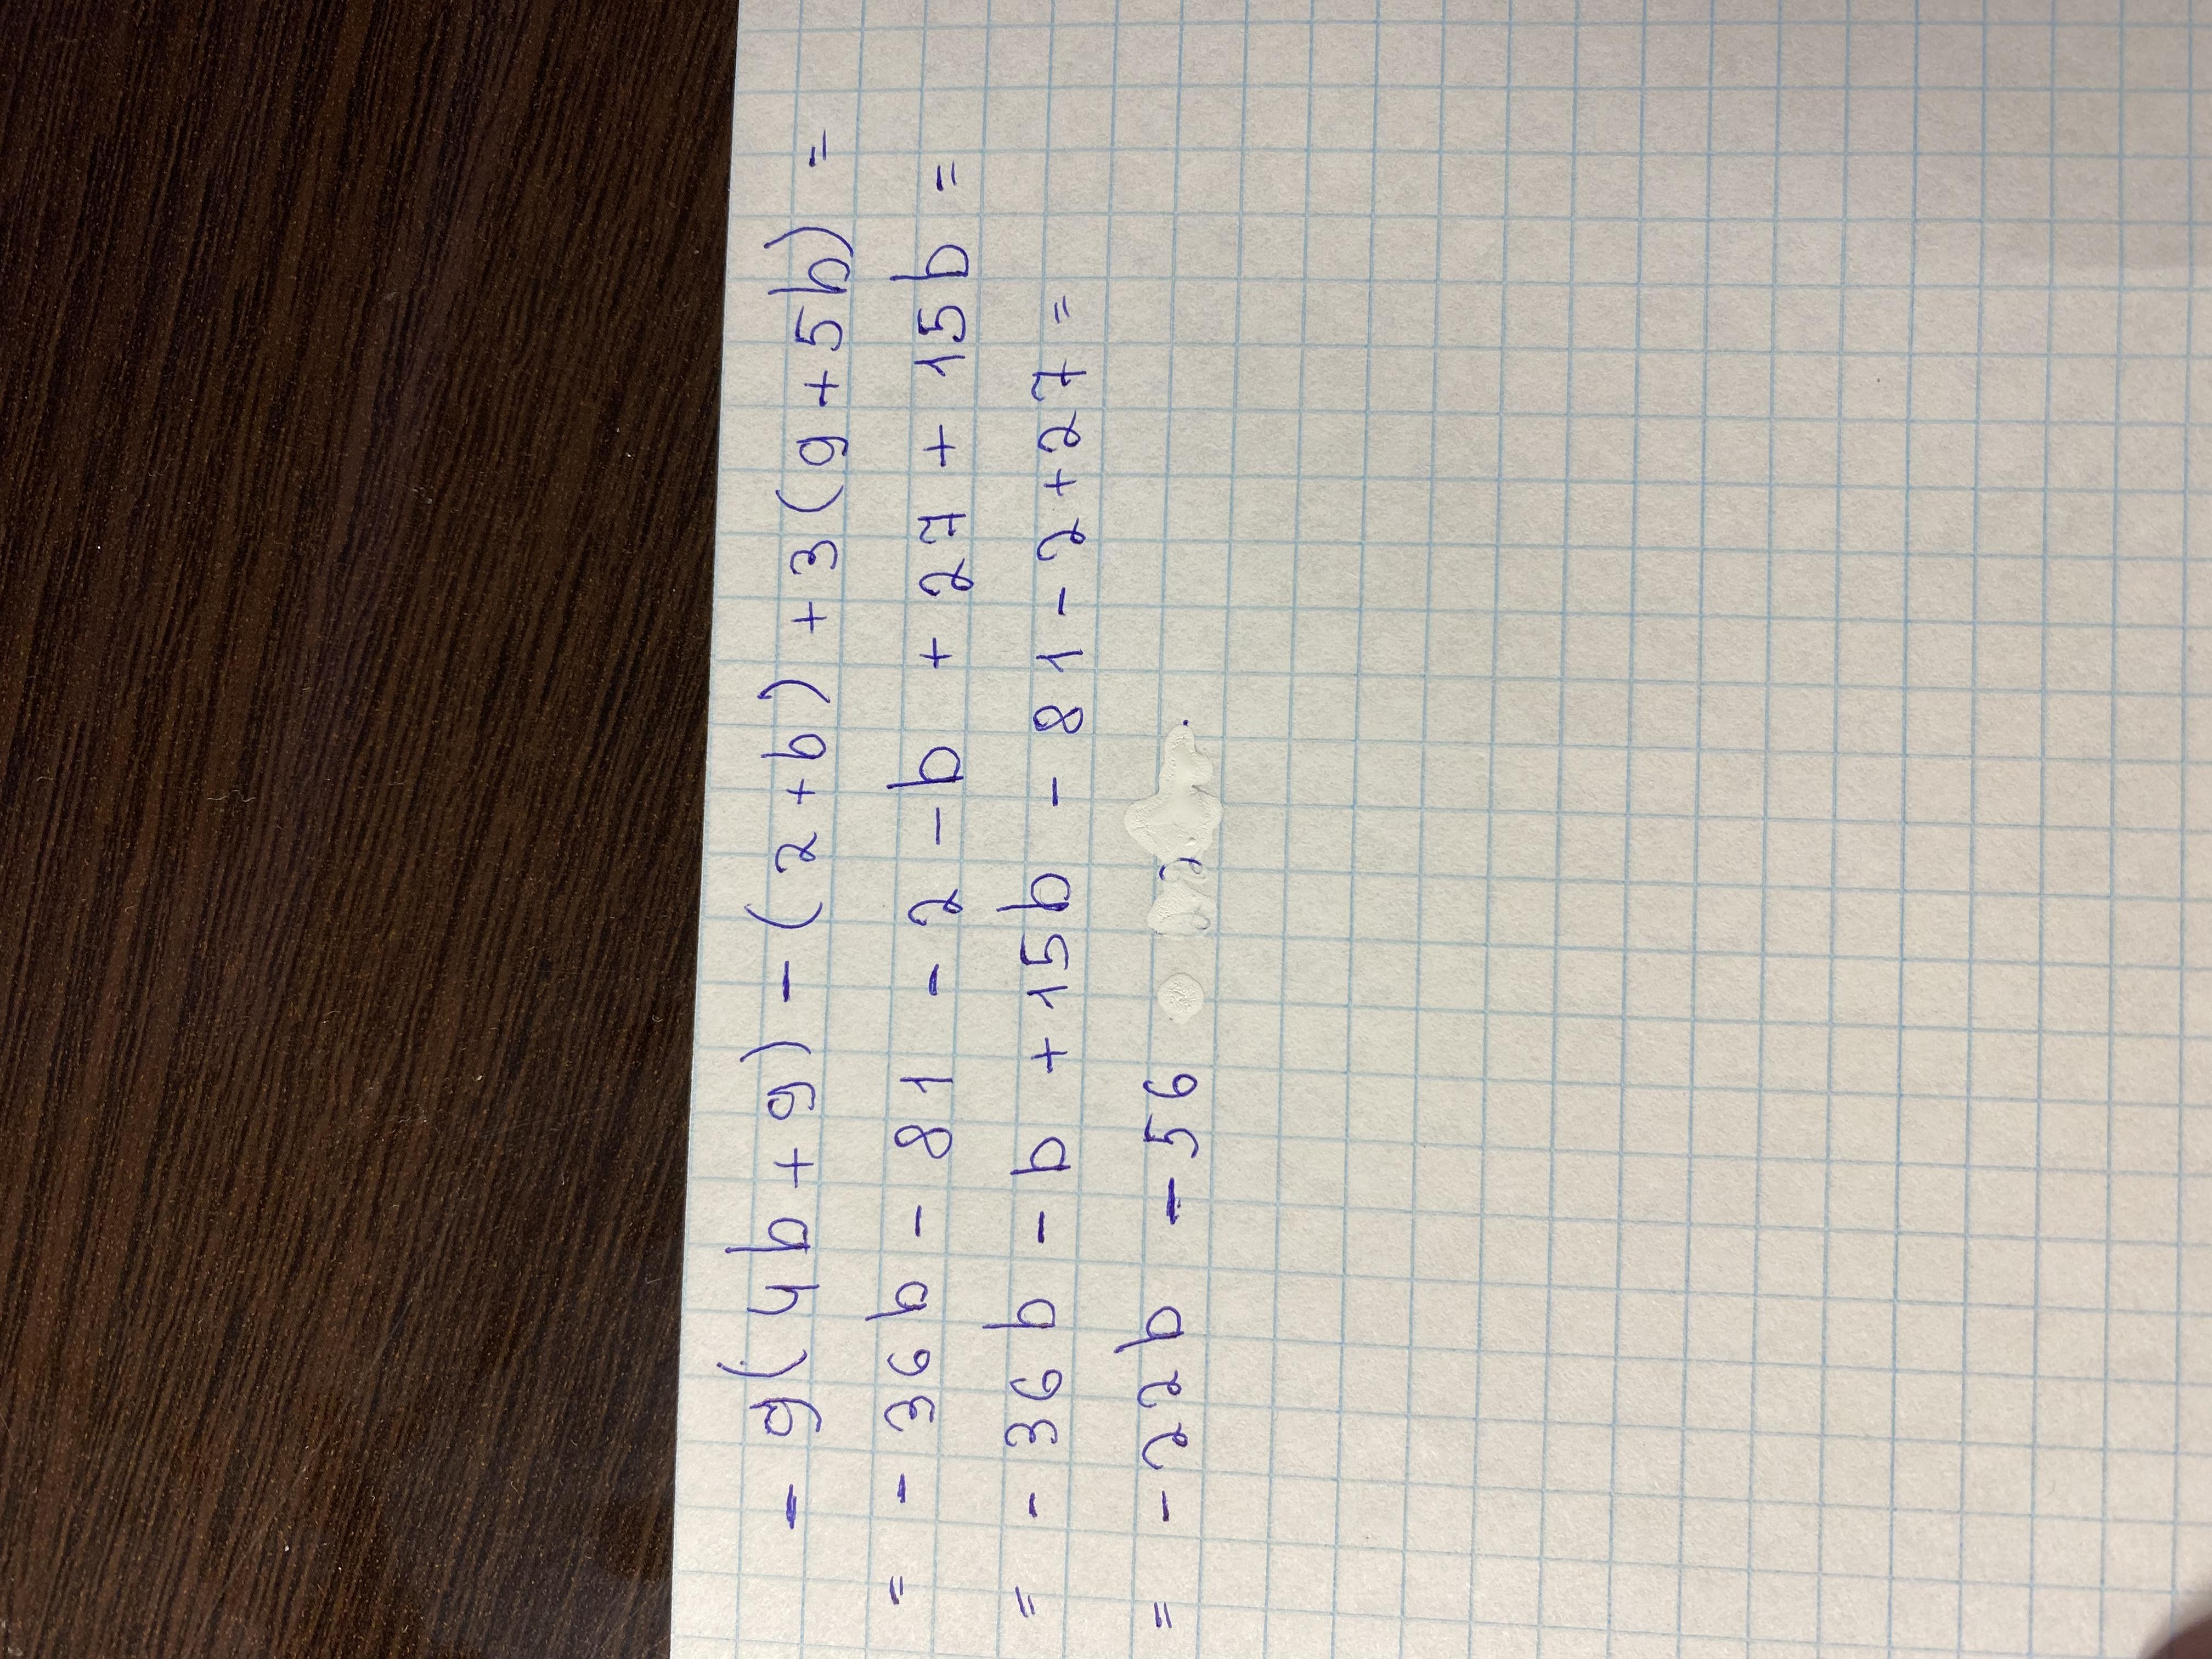 - 9(4b + 9) - (2 + b) + 3(9 + 5b) =
= - 36b - 81 - 2 - b + 27 + 15b =
= - 36b - b + 15b - 81 - 2 + 27 =
= - 22b - 56